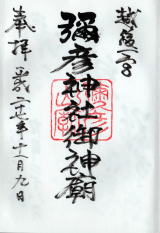 越後一宮
彌彦神社御神廟
奉拝 平成二十七年十一月九日